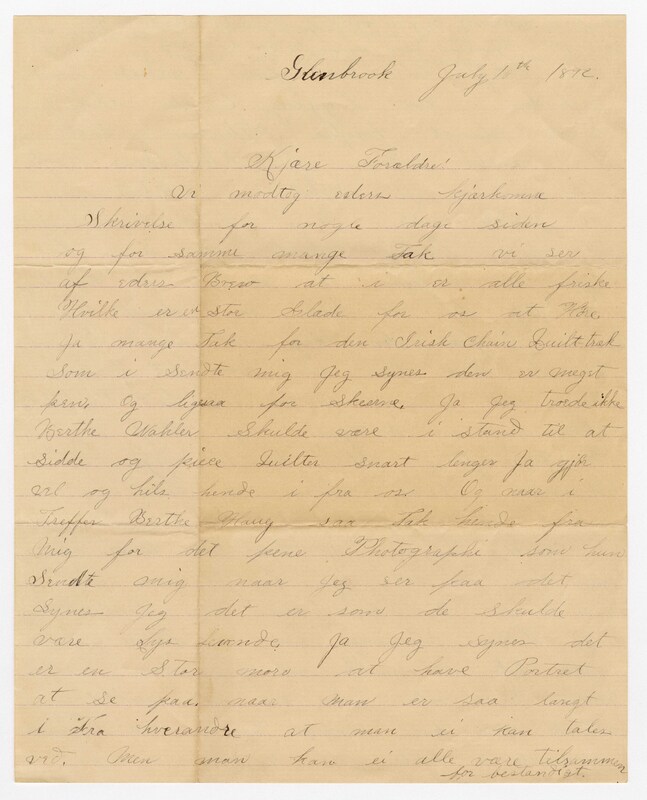 Glenbrook July 1th 1892.
Kjære Forældre!
Vi modtog eders kjærkomne
Skrivelse for nogle dage siden
og for samme mange Tak vi ser
af eders Brev at i er alle friske
Hvilke er en stor Glæde for os at Høre.
Ja mange Tak for den Irish Chain Quilt
Som i Sendte mig Jeg Synes den er meget
pen. Og ligesaa for Skeerne. Ja Jeg troede ikke
Berthe Wahler Skulde være i stand til at
Sidde og piece Quilter snart lenger Ja gjør
vel og hils hende i fra os Og naar i
Treffer Berthe Haug saa Tak hende fra
Mig for det pene Photographie som hun
Sendte mig naar Jeg ser paa det
Synes Jeg det er som de skulde
være Lys levende. Ja Jeg synes det
er en Stor moro at have Portret
at se paa. naar man er saa langt
i Fra hverandre at man ei kan tales
ved. Men man kan ei alle være tilsammen
for bestandigt.